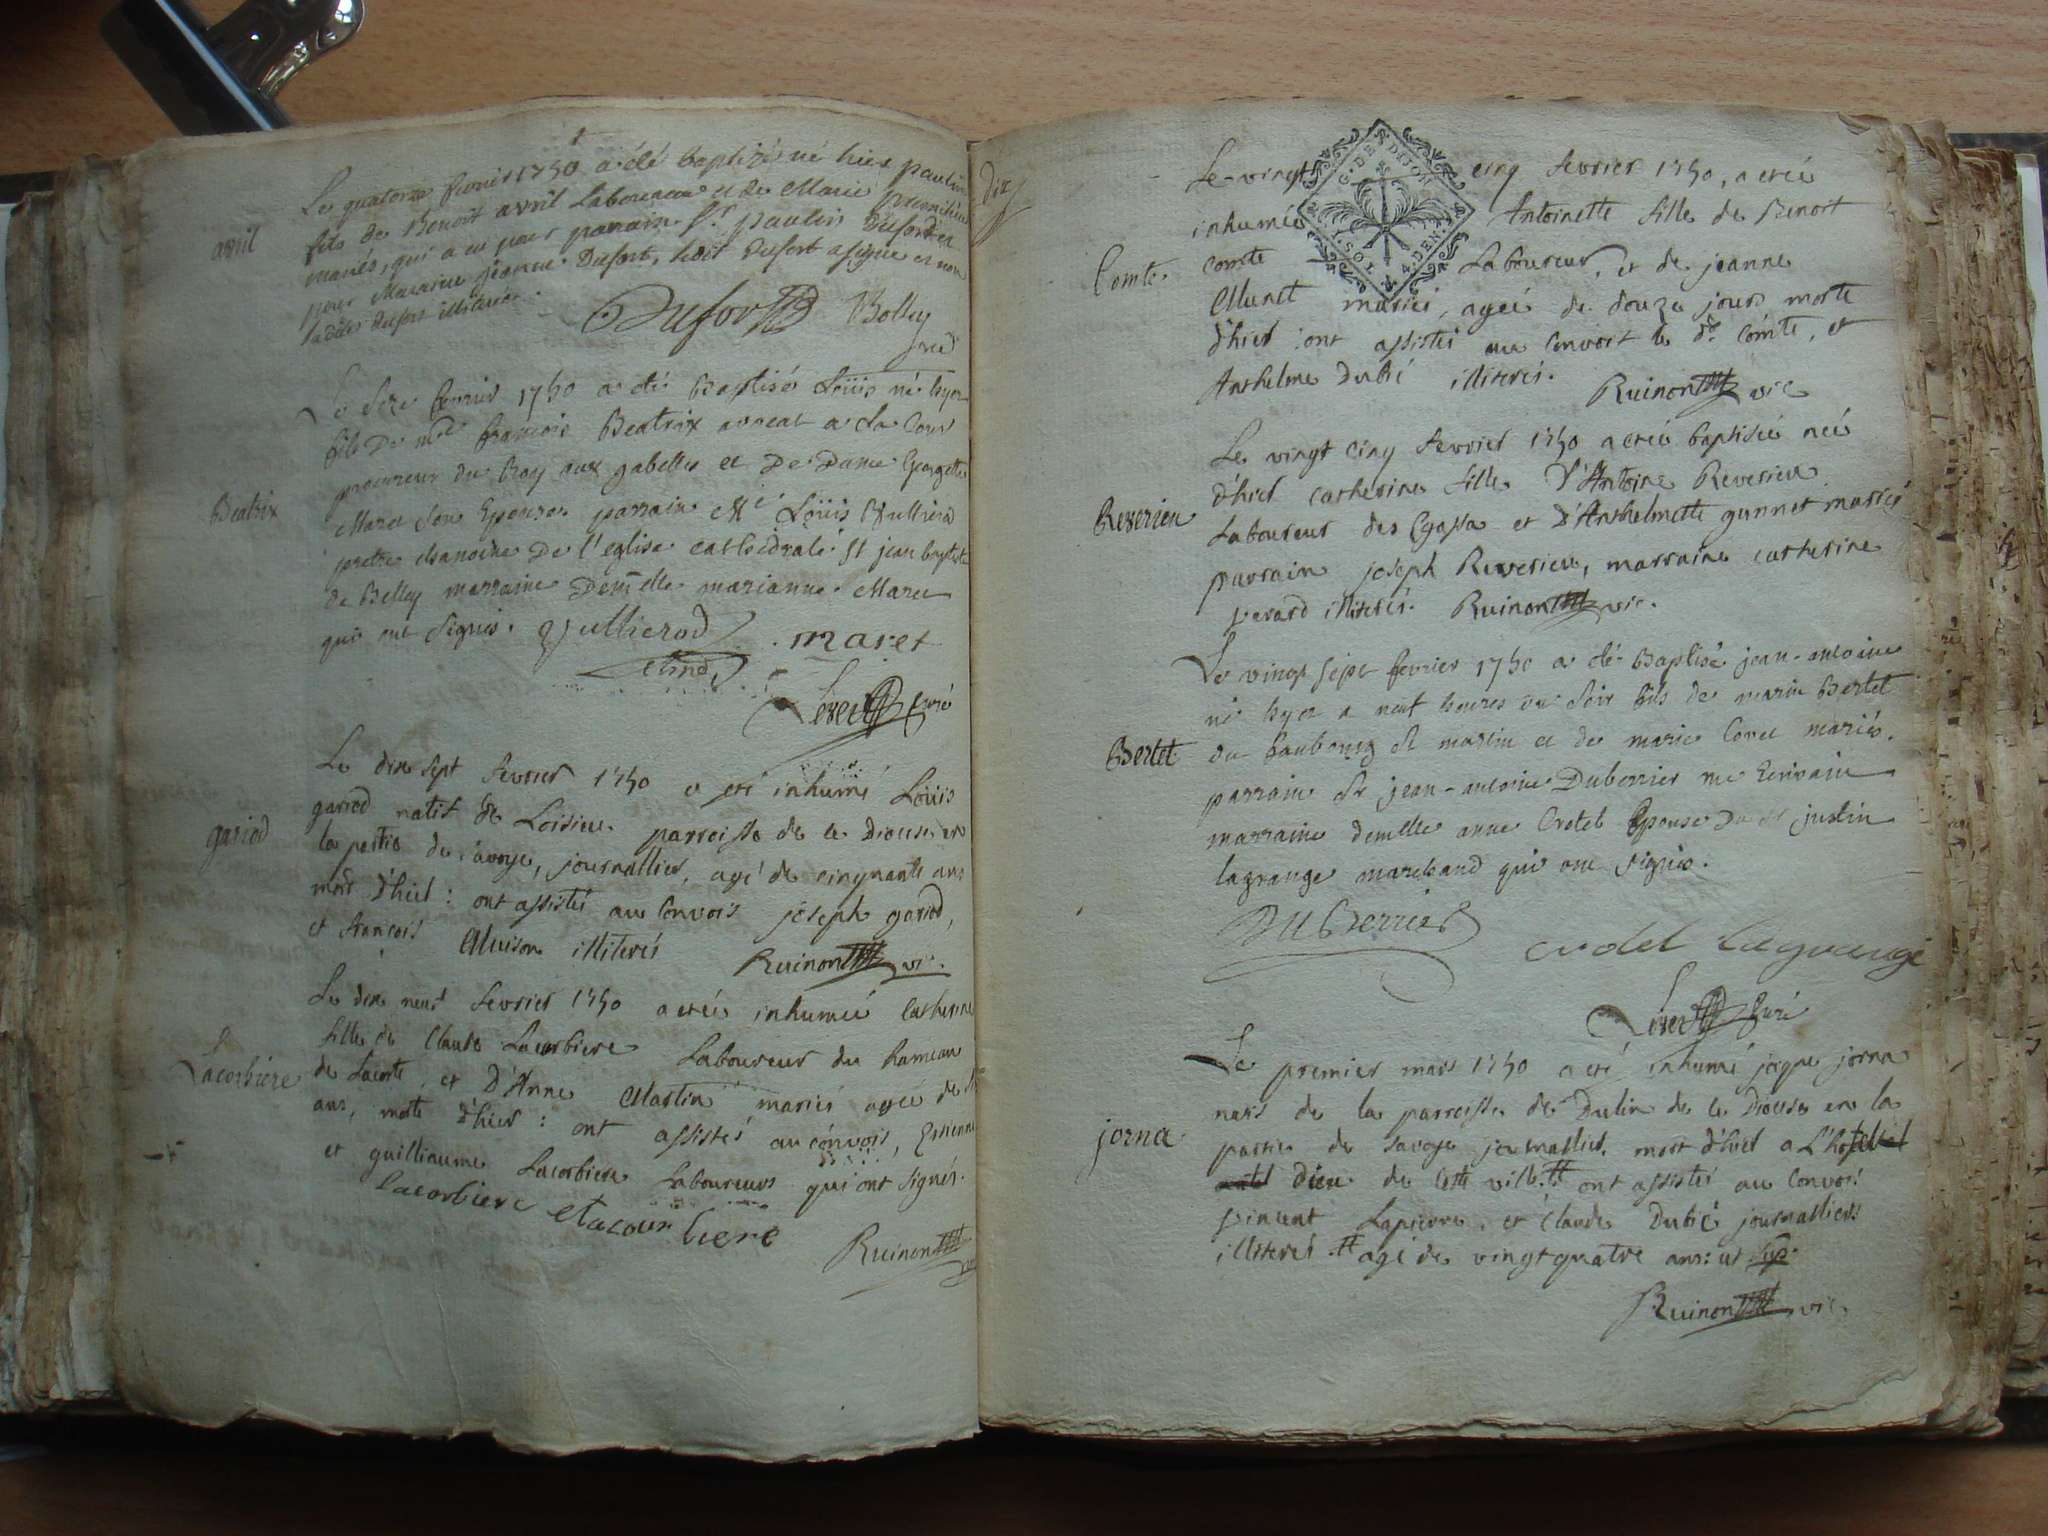 Le quatorze fevrier 1750 a été baptizé né hier paulin
fils de Benoit avril Laboureur et de Marie
avril
mariés, qui a eu pour parrain Sr. paulin Dufort et
pour Maraine jeanne Dufort, ledit dufort a signé et non
ladite dufort illiterée.
Dufort Bolley
Le seze fevrier 1750 a eté Baptisé Loüis né hyer
fils De me françois Beatrix avocat a La Cour
procureur du Roy aux gabelles et De Dame Georgette
Beatrix
Maret son Epouse. parrain Mre Loüis Vullierod
pretre chanoine De l'eglise cathedrale St jean baptiste
de Belley marraine Demelle marianne Maret
qui ont signés. Vullierod maret
chne
curé
Le dix sept fevrier 1750 a eté inhumé Loüis
gariod natif de Loisieu parroisse de ce Diocese en
gariod
la partie de savoye, journallier, agé de cinquante ans
mort d'hier : ont assistés au Convois joseph gariod,
et francois Muison illiterés
Ruinon vic.
Le dix neuf fevrier 1750 a etée inhumée Catherine
fille de Claude Lacorbiere Laboureur du hameau
Lacorbiere
de Lacoste, et D'Anne Martin mariés agée de
ans, morte d'hier : ont assistés au convois, Estienne
et guilliaume Lacorbiere Laboureurs qui ont signés.
lacorbiere elacourbiere
Ruinon vic
dix
Le vingt cinq fevrier 1750, a etée
inhumée Antoinette fille de Benoit
G. DE DIJON
1. SOL 4. DEN.
Comte
Comte Laboureur, et de jeanne
Munet mariés, agée de douze jours morte
d'hier : ont assistés au Convoit le dt Comte, et
Anthelme Dubié illiterés.
Ruinon vic
Le vingt cinq fevrier 1750 a etée baptisée née
d'hier catherine fille D'Antoine Reverieu
Reverieu
Laboureur des et D'Anthelmette gunnet mariés
parrain joseph Reverieu, marraine catherine
perard illiterés. Ruinon vic.
Le vingt sept fevrier 1750 a eté Baptisé jean-antoine
né hyer a neuf heures du soir fils de marin Bertet
Bertet
du faubourg St martin et de marie Coret mariés.
parrain Sr jean-antoine Duberrier me Ecrivain
marraine demelle anne Crotel Epouse Du Sr justin
lagrange marchand qui ont signés.
Duberrier
crotel lagrange
curé
Le premier mars 1750 a eté inhumé joque jorna
natif de la parroisse de Dulin de ce Diocese en la
jorna
partie de savoye journallier, mort d'hier a L'hotel
Dieu de cette ville. ont assistés au Convoi
vincent Lapierre, et Claude Dubié journalliers
illiterés agé de vingt quatre ans: ut sup.
Ruinon vic.